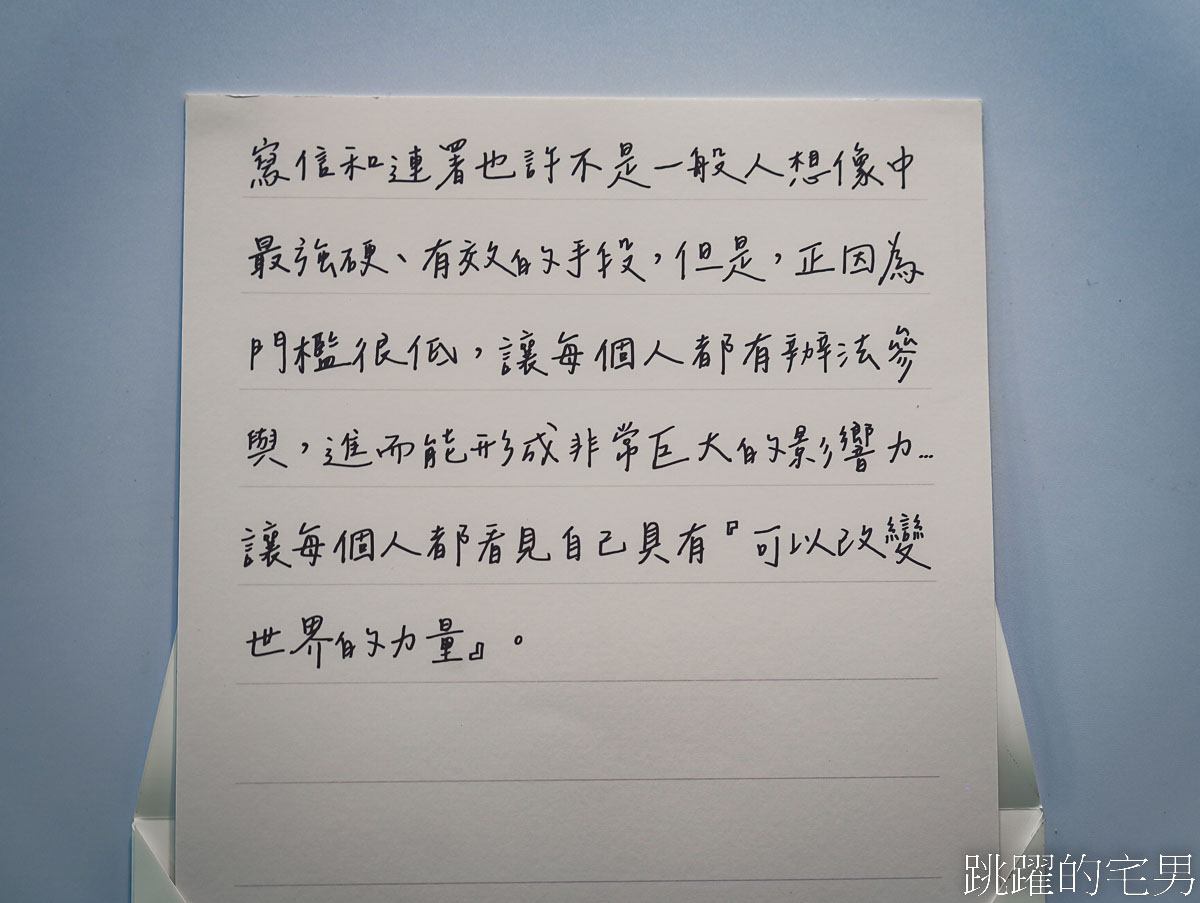 寫信和連署也許不是一般人想像中
最強硬、有效的手段,但是,正因為
門檻很低,讓每個人都有辦法參
與,進而能形成非常巨大的影響力…
讓每個人都看見自己具有『可以改變
世界的力量』。
跳躍的宅男